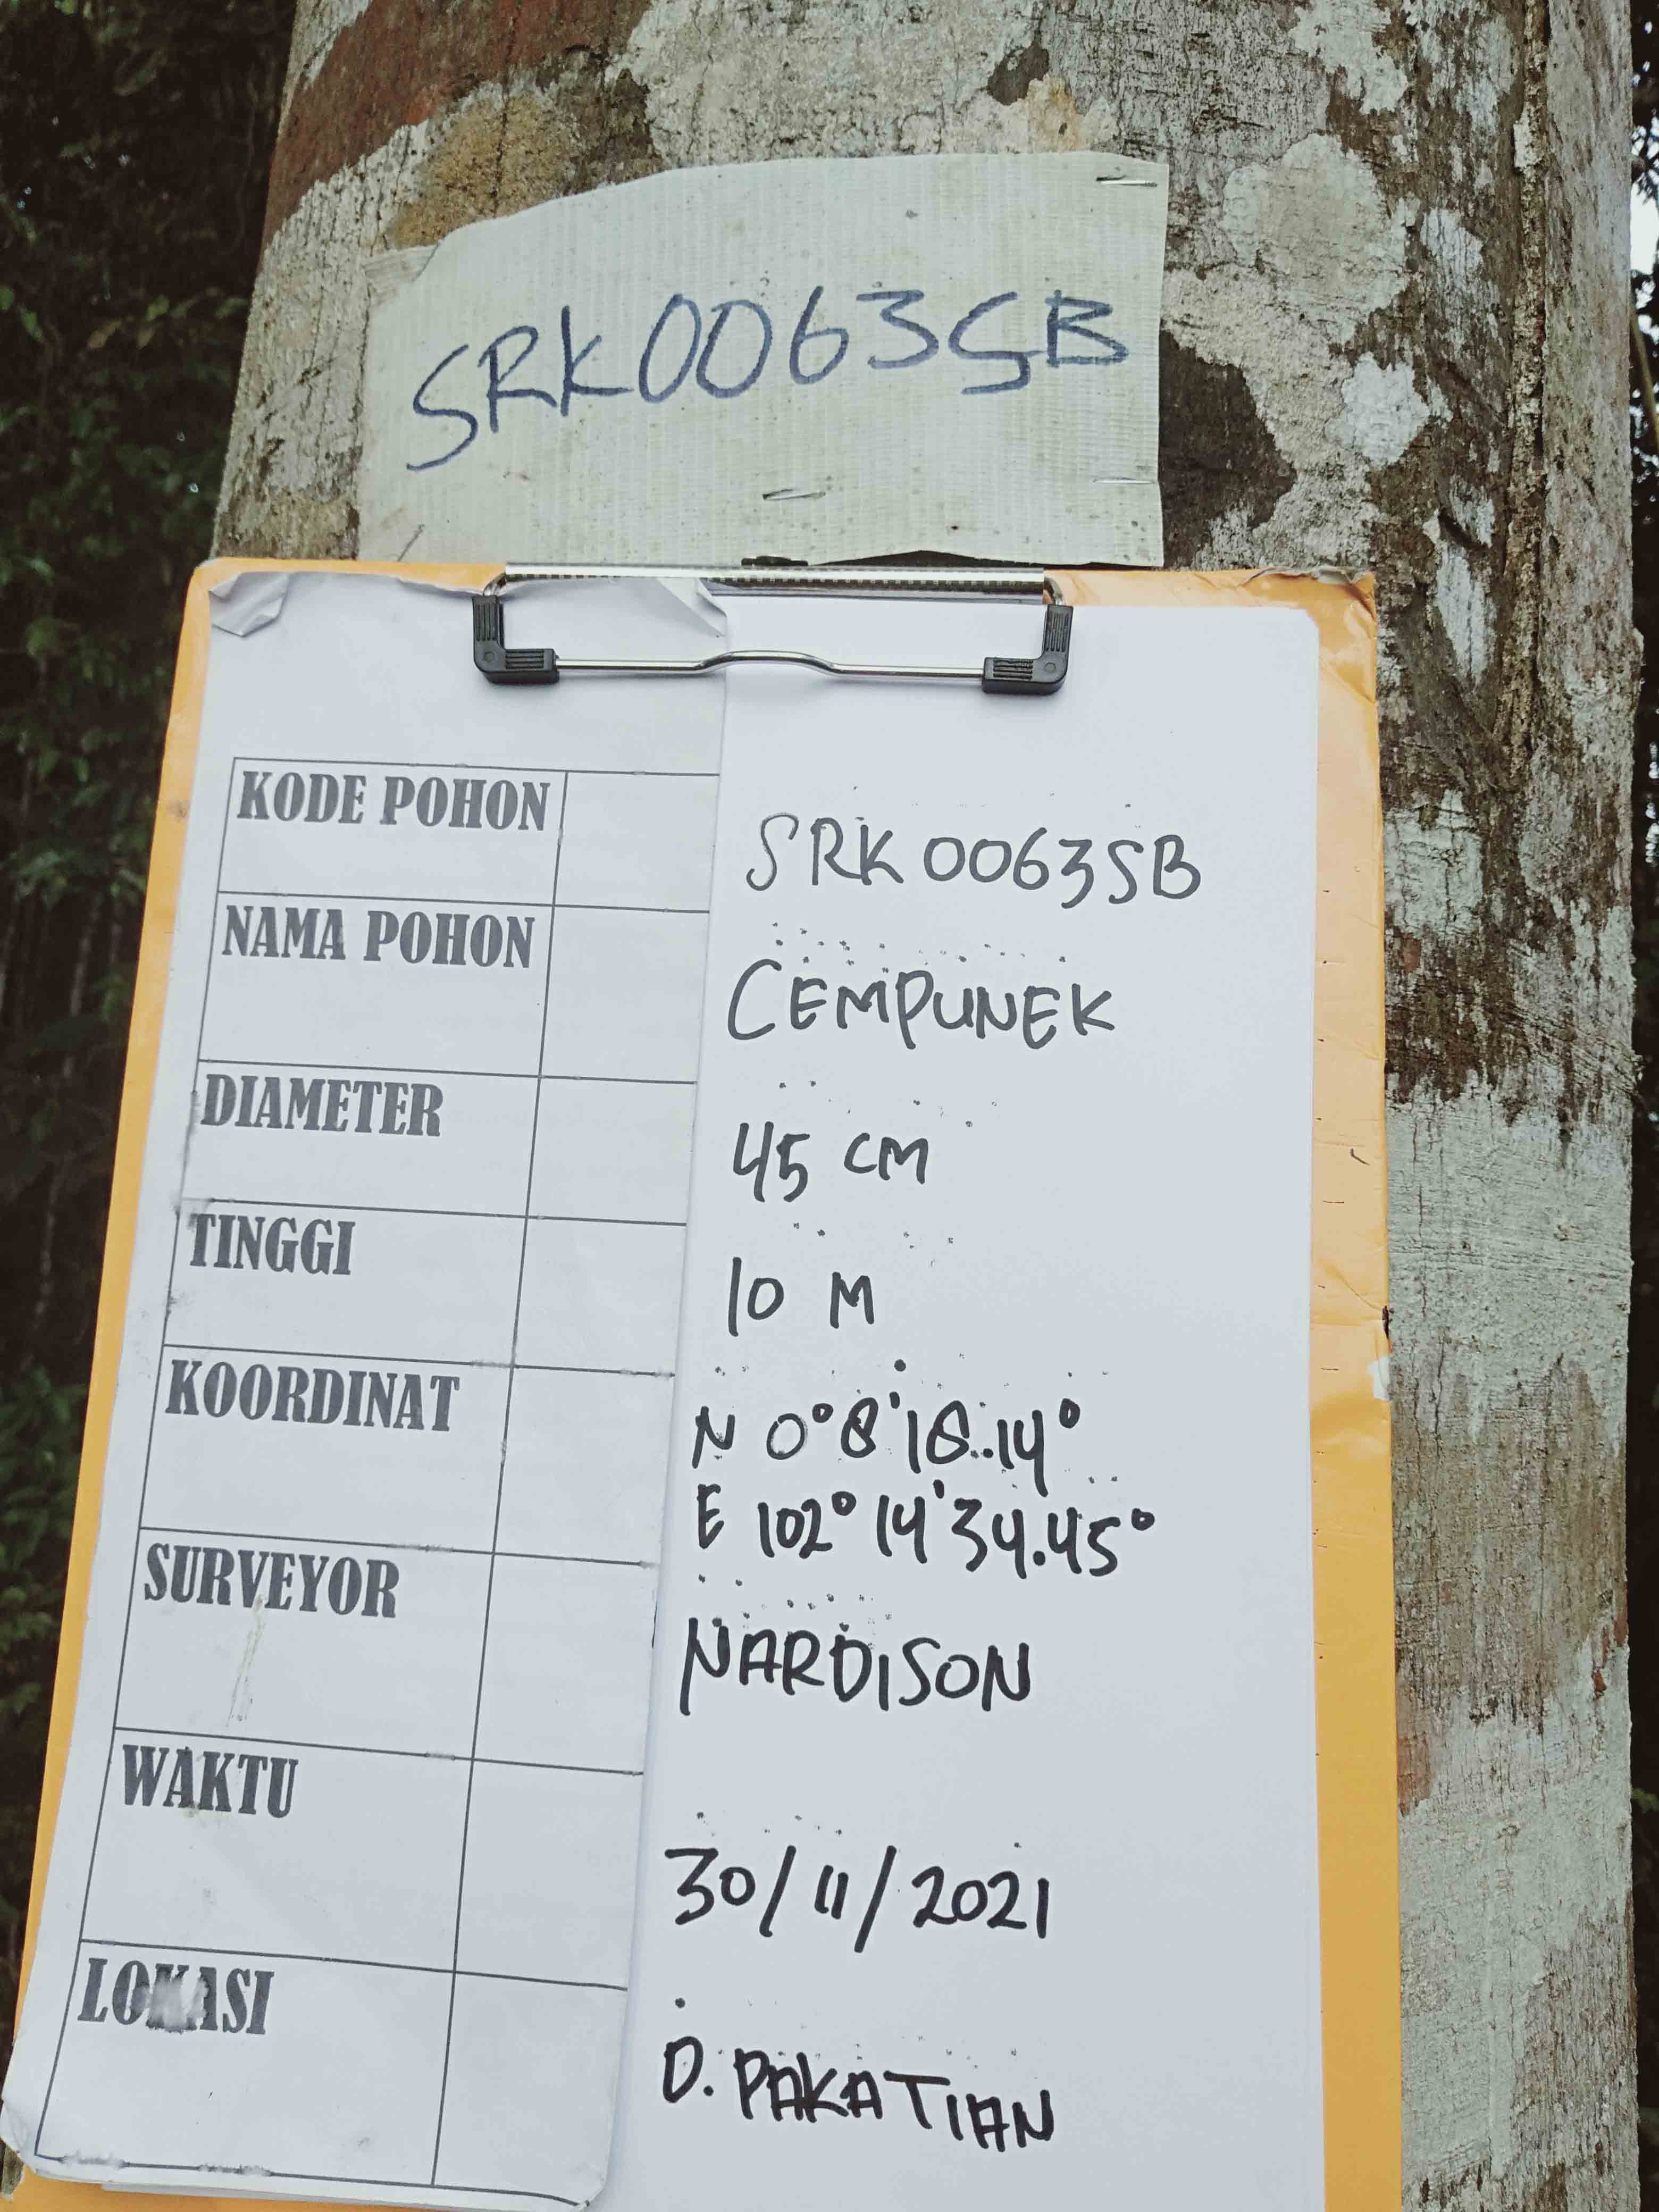 SRK0063SB
KODE POHON SRK0063SB
NAMA POHON CEMPUNEK
DIAMETER 45 CM
TINGGI 10 M
KOORDINAT N 0°8'18.14°
E 102°14'34.45°
SURVEYOR NARDISON
WAKTU 30/11/2021
LOKASI D. PAKATIAN